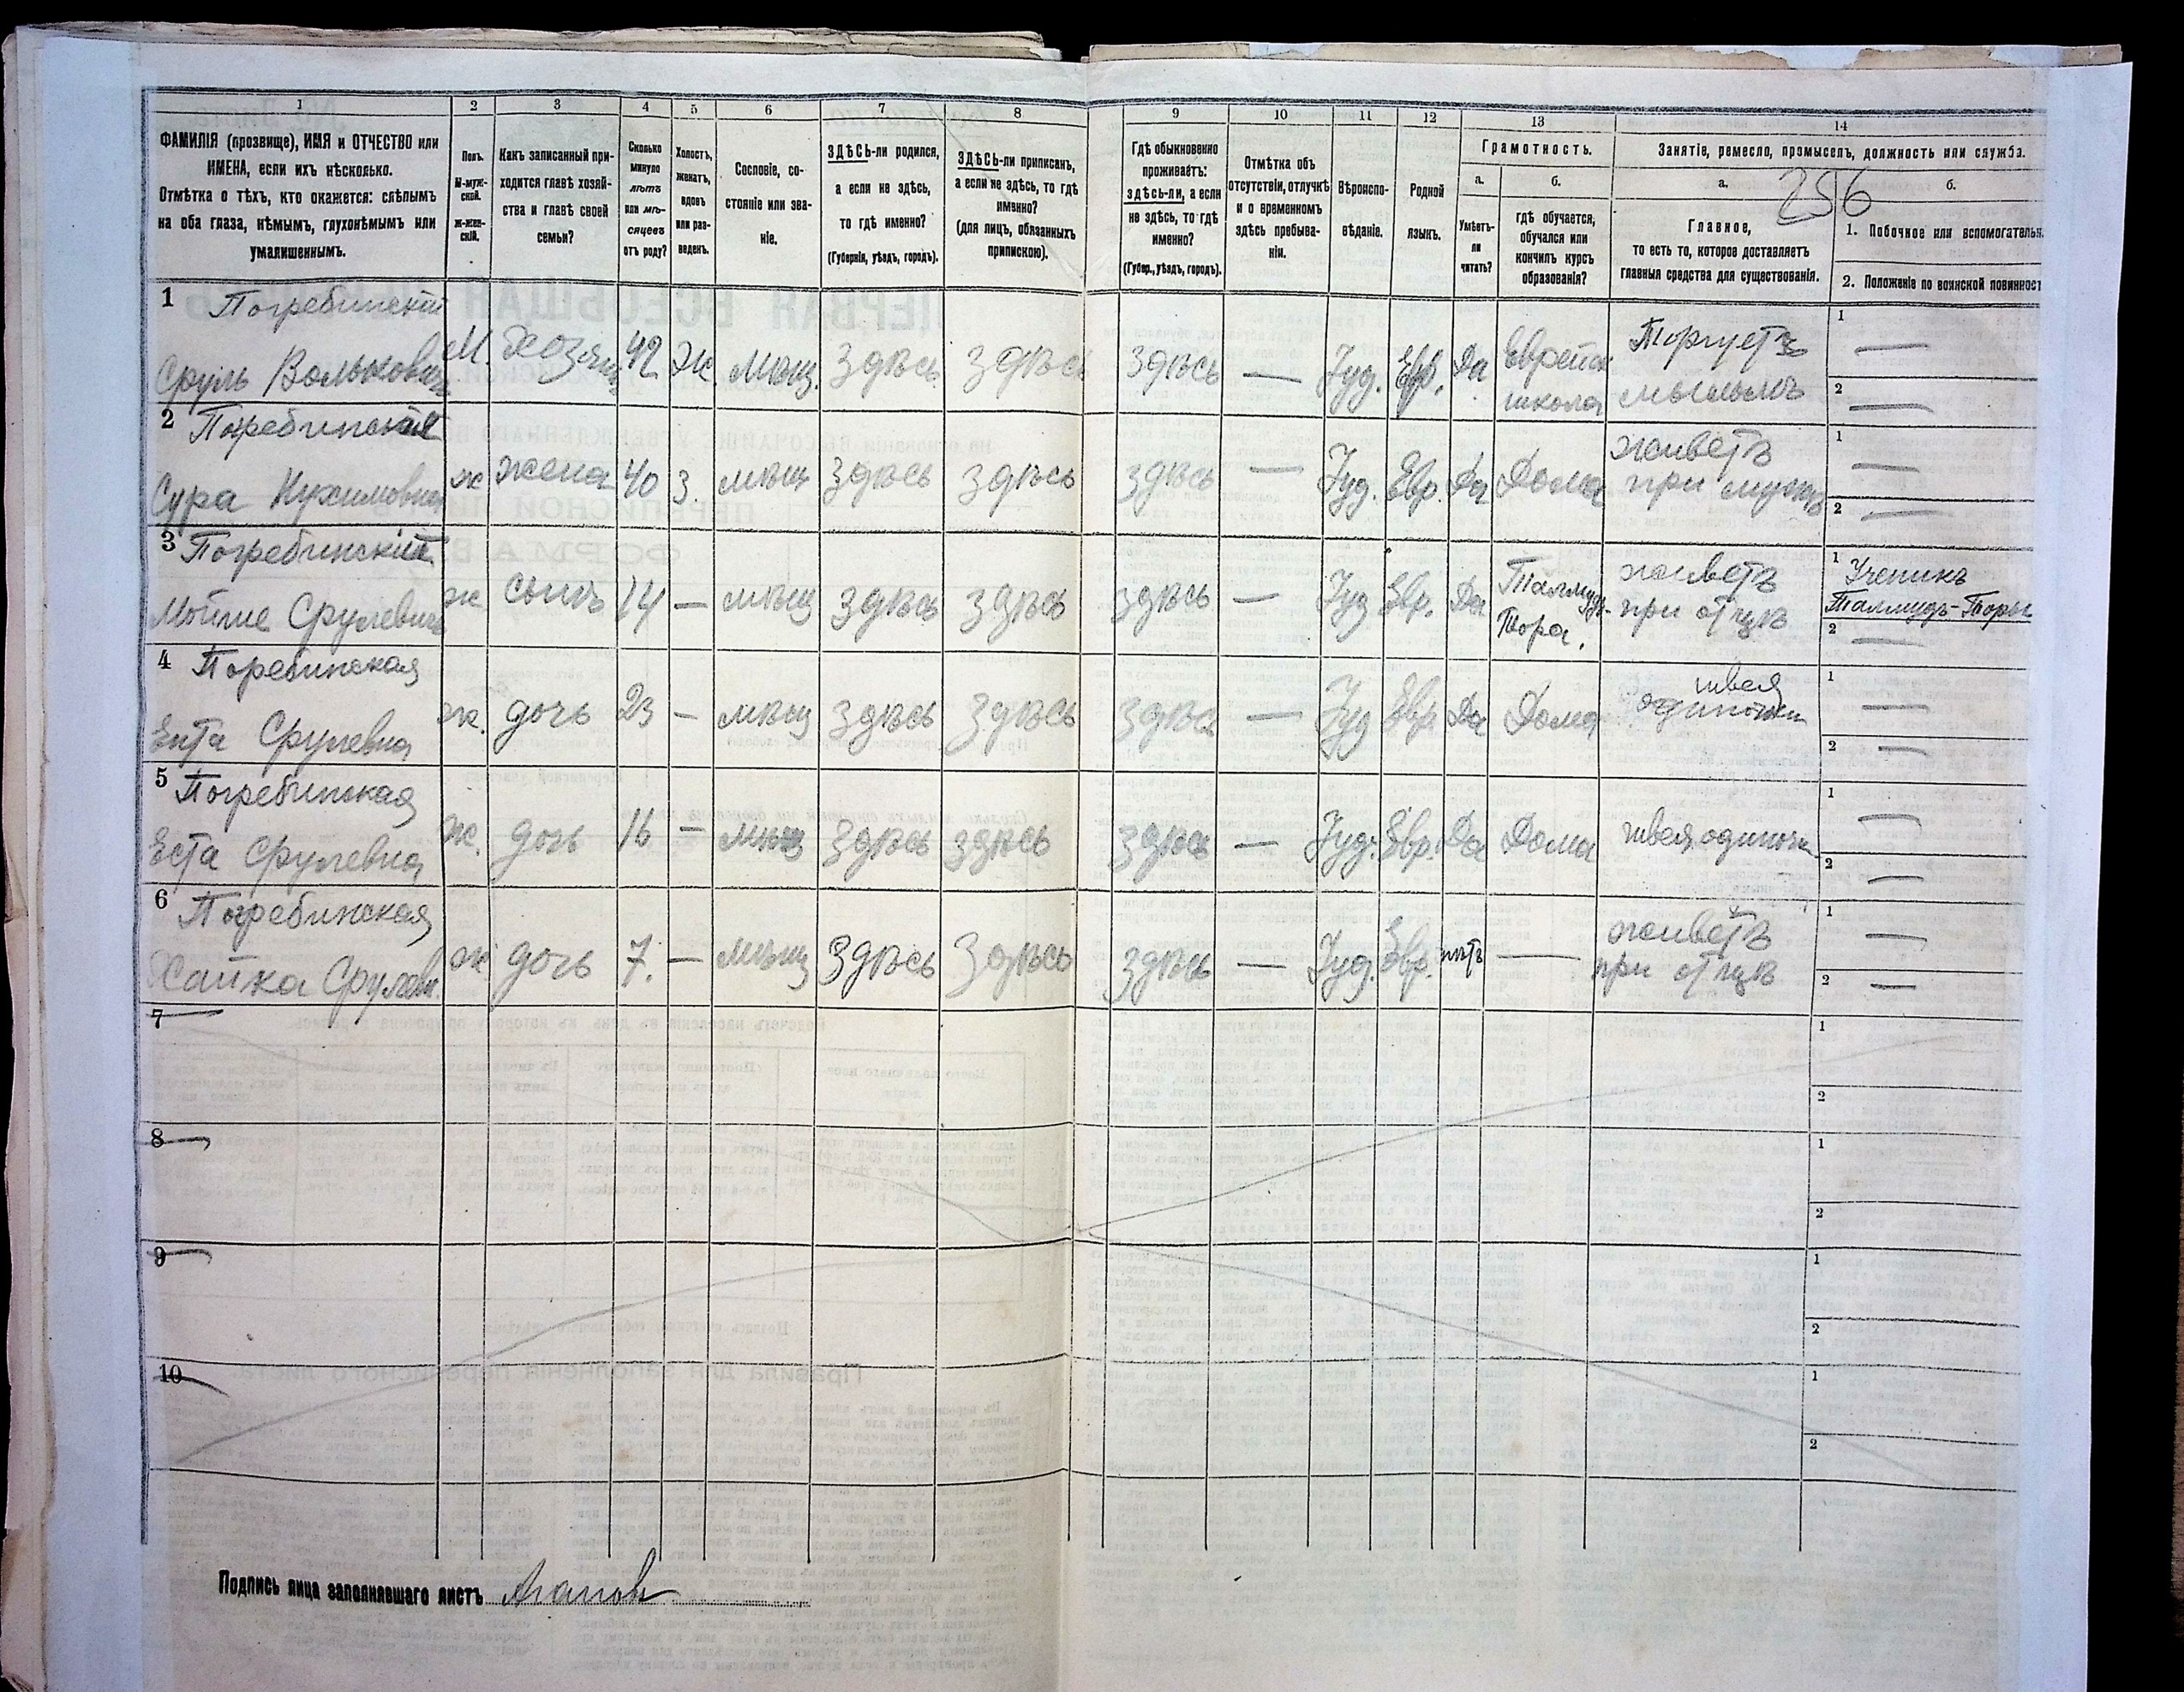 1 2 3 4 5 6 7 8 9 10 11 12 13 14
ФАМИЛІЯ (прозвище), ИМЯ и ОТЧЕСТВО или
ИМЕНА, если ихъ нѣсколько.
Отмѣтка о тѣхъ, кто окажется: слѣпымъ
на оба глаза, нѣмымъ, глухонѣмымъ или
умалишеннымъ.
Полъ.
М-муж-
ской.
ж-жен-
скій.
Какъ записанный при-
ходится главѣ хозяй-
ства и главѣ своей
семьи?
Сколько
минуло
лѣтъ
или мѣ-
сяцевъ
отъ роду?
Холостъ,
женатъ,
вдовъ
или раз-
веденъ.
Сословіе, со-
стояніе или зва-
ніе.
ЗДѢСЬ-ли родился,
а если не здѣсь,
то гдѣ именно?
(Губернія, уѣздъ, городъ).
ЗДѢСЬ-ли приписанъ,
а если не здѣсь, то гдѣ
именно?
(для лицъ, обязанныхъ
припискою).
Гдѣ обыкновенно
проживаетъ:
здѣсь-ли, а если
не здѣсь, то гдѣ
именно?
(Губер., уѣздъ, городъ).
Отмѣтка объ
отсутствіи, отлучкѣ
и о временномъ
здѣсь пребыва-
ніи.
Вѣроиспо-
вѣданіе.
Родной
языкъ.
Грамотность.
а.
Умѣетъ-
ли
читать?
б.
гдѣ обучается,
обучался или
кончилъ курсъ
образованія?
Занятіе, ремесло, промыселъ, должность или служба.
256
а.
Главное,
то есть то, которое доставляетъ
главныя средства для существованія.
б.
1. Побочное или вспомогательн
2. Положеніе по воинской повинност
1 Погребинскій
Сруль Вольковичъ М. хозяинъ 42 Ж. мѣщ. Здѣсь Здѣсь Здѣсь — Іуд. Евр. Да Еврейск школа Торгуетъ мыломъ 1 — 2 —
2 Погребинская
Сура Нухимовна ж жена 40 З. мѣщ Здѣсь Здѣсь Здѣсь — Іуд. Евр. Да Дома живетъ при мужѣ 1 — 2 —
3 Погребинскій
Мойше Срулевичъ ж сынъ 14 — мѣщ здѣсь здѣсь здѣсь — Іуд Евр. Да Талмудъ-Тора. живетъ при отцѣ 1 Ученикъ Талмудъ-Торы 2 —
4 Поребинская
Ента Срулевна ж. дочь 23 — мѣщ Здѣсь Здѣсь Здѣс — Іуд Евр Да Дома швея одиночка 1 — 2 —
5 Погребинская
Еста Срулевна ж. дочь 16 — мѣщ Здѣсь здѣсь Здѣсь — Іуд. Евр. Да Дома швея одиночка 1 — 2 —
6 Погребинская
Хайка Срулевн. ж дочь 7. — мѣщ Здѣсь Здѣсь Здѣсь — Іуд. Евр. нѣтъ — живетъ при отцѣ 1 — 2 —
7 1
2
8 1
2
9 1
2
10 1
2
Подпись лица заполнявшаго листъ Агапов